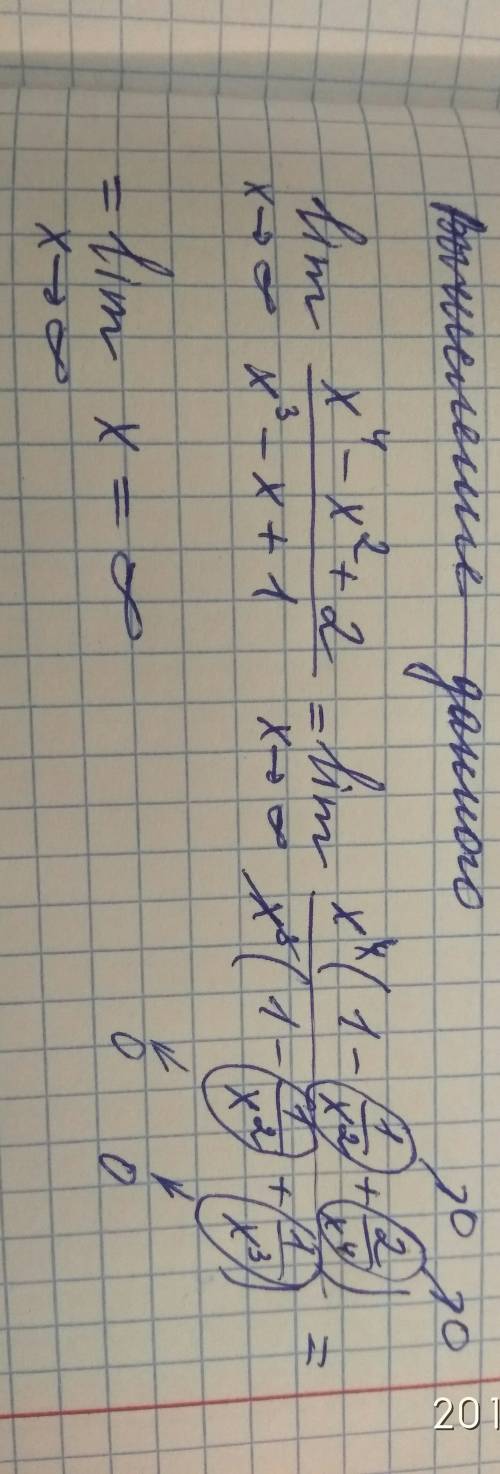 вычисление данного
lim x→∞ (x⁴ - x² + 2)/(x³ - x + 1) = lim x→∞ x⁴(1 - 1/x² + 2/x⁴)/x³(1 - 1/x² + 1/x³) =
→0 →0
→0 →0
= lim x→∞ x = ∞
201